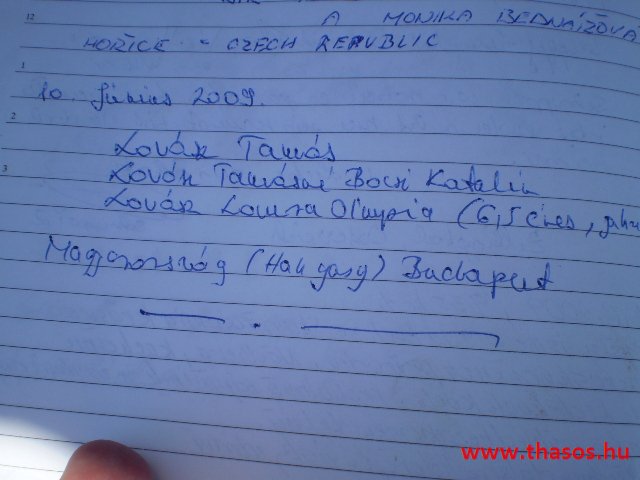 12
A MONIKA BEDNÁŘOVÁ
HOŘICE - CZECH REPUBLIC
1
10. Június 2009.
2
Lovász Tamás
3
Lovász Tamásné Bocsi Katalin
Lovász Laura Olimpia (6,5 éves,
Magyarország (Hungary) Budapest
www.thasos.hu